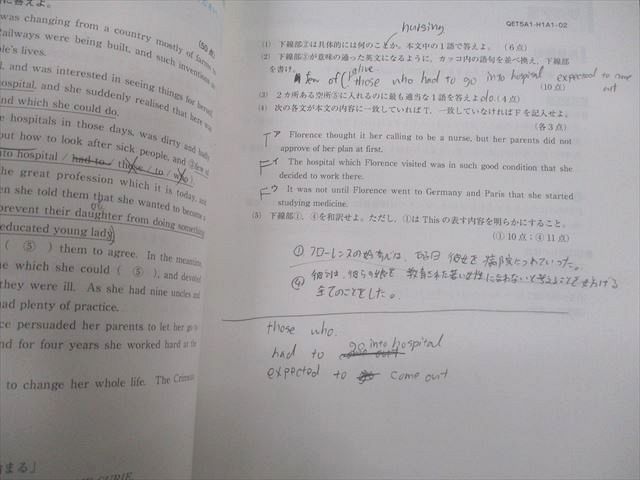 に答えよ。
(50点)
was changing from a country mostly of farms to
Railways were being built, and such inventions as
ple's lives.
l, and was interested in seeing things for herself.
ospital, and she suddenly realised that here was
nd which she could do.
e hospitals in those days, was dirty and badly
out how to look after sick people, and ③few of
nto hospital / had to / those / to / who )
the great profession which it is today, and
en she told them that she wanted to become a
prevent their daughter from doing something
educated young lady.
( ⑤ ) them to agree. In the meantime,
ne which she could ( ⑤ ), and devoted
they were ill. As she had nine uncles and
had plenty of practice.
ce persuaded her parents to let her go to
nd for four years she worked hard at the
to change her whole life. The Crimean
QET5A1-H1A1-02
nursing
(1) 下線部②は具体的には何のことか。本文中の1語で答えよ。 (6点)
(2) 下線部③が意味の通った英文になるように, カッコ内の語句を並べ換え, 下線部
を書け。
(10点)
few of (alive those who had to go into hospital expected to come out
(3) 2カ所ある空所⑤に入れるのに最も適当な1語を答えよ。do. (4点)
(4) 次の各文が本文の内容に一致していればT, 一致していなければFを記入せよ。
(各3点)
T ア Florence thought it her calling to be a nurse, but her parents did
not approve of her plan at first.
F イ The hospital which Florence visited was in such good condition that she
decided to work there.
F ウ It was not until Florence went to Germany and Paris that she started
studying medicine.
(5) 下線部①, ④を和訳せよ。ただし, ①は This の表す内容を明らかにすること。
(①10点;④11点)
全てのことをした。
those who.
had to go into hospital
expected to come out